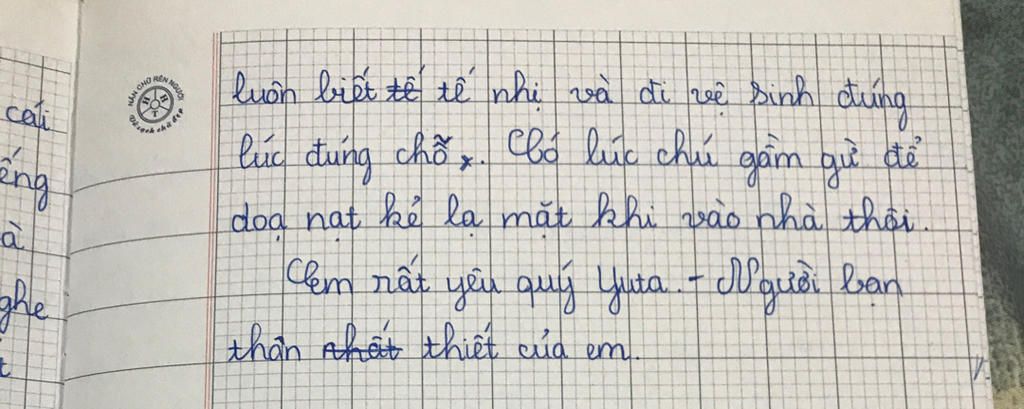 cái
ếng
à
ghe
t
NÂN CHỮ RÈN NGƯỜI
Vở sạch chữ đẹp
luôn biết tế tế nhị và đi vệ sinh đúng
lúc đúng chỗ. Có lúc chú gầm gừ để
doạ nạt kẻ lạ mặt khi vào nhà thôi.
Em rất yêu quý Yuta. - Người bạn
thân nhất thiết của em.